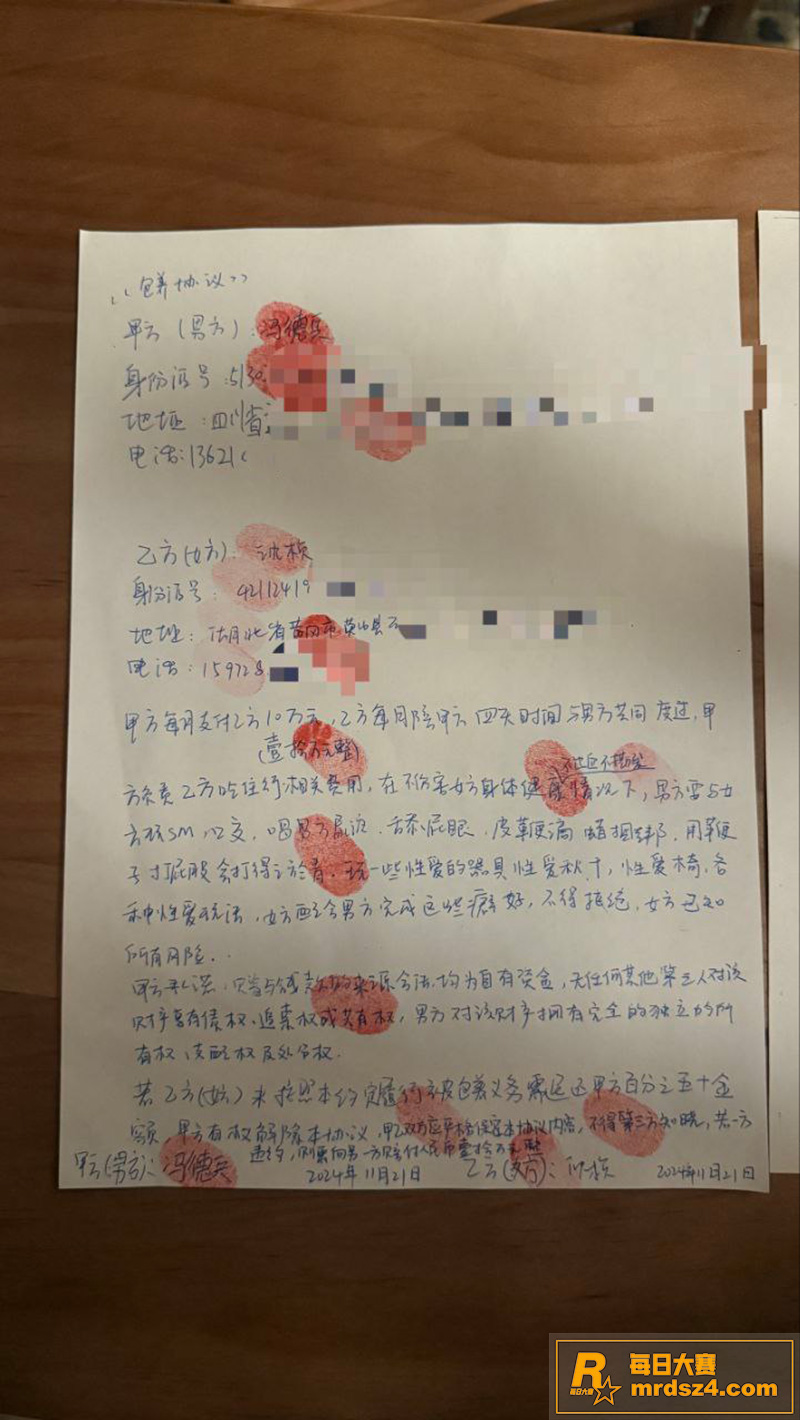 “包养协议”
甲方(男方):冯德兵
身份证号:5130
地址:四川省
电话:13621
乙方(女方):
身份证号:42112419
地址:湖北省黄冈市英山县
电话:159728
甲方每月支付乙方10万元,乙方每月陪甲方四天时间与男方共同度过,甲
(壹拾万元整)
不扯不拽
方负责乙方吃住行相关费用,在不伤害女方身体健康情况下,男方要与女
方玩SM,口交,喝男方尿液,舔屁眼,皮鞭滴蜡捆绑,用鞭
子打屁股会打得,玩一些性爱的器具性爱秋千,性爱椅,各
种性爱玩法,女方配合男方完成这些癖好,不得拒绝,女方已知
所有风险..
甲方承诺,赠与钱款的来源合法,均为自有资金,无任何其他第三人对该
财产享有债权、追索权或共有权,男方对该财产拥有完全的独立的所
有权、支配权及处分权.
若乙方(女方)未按照本约定履行被包养义务需退还甲方百分之五十金
额,男方有权解除本协议,甲乙双方应严格保密本协议内容,不得第三方知晓,若一方
违约,则需向另一方赔付人民币壹拾万元整
甲方(男方):冯德兵 2024年11月21日 乙方(女方): 2024年11月21日
R
每日大赛
每日大赛
mrdsz4.com